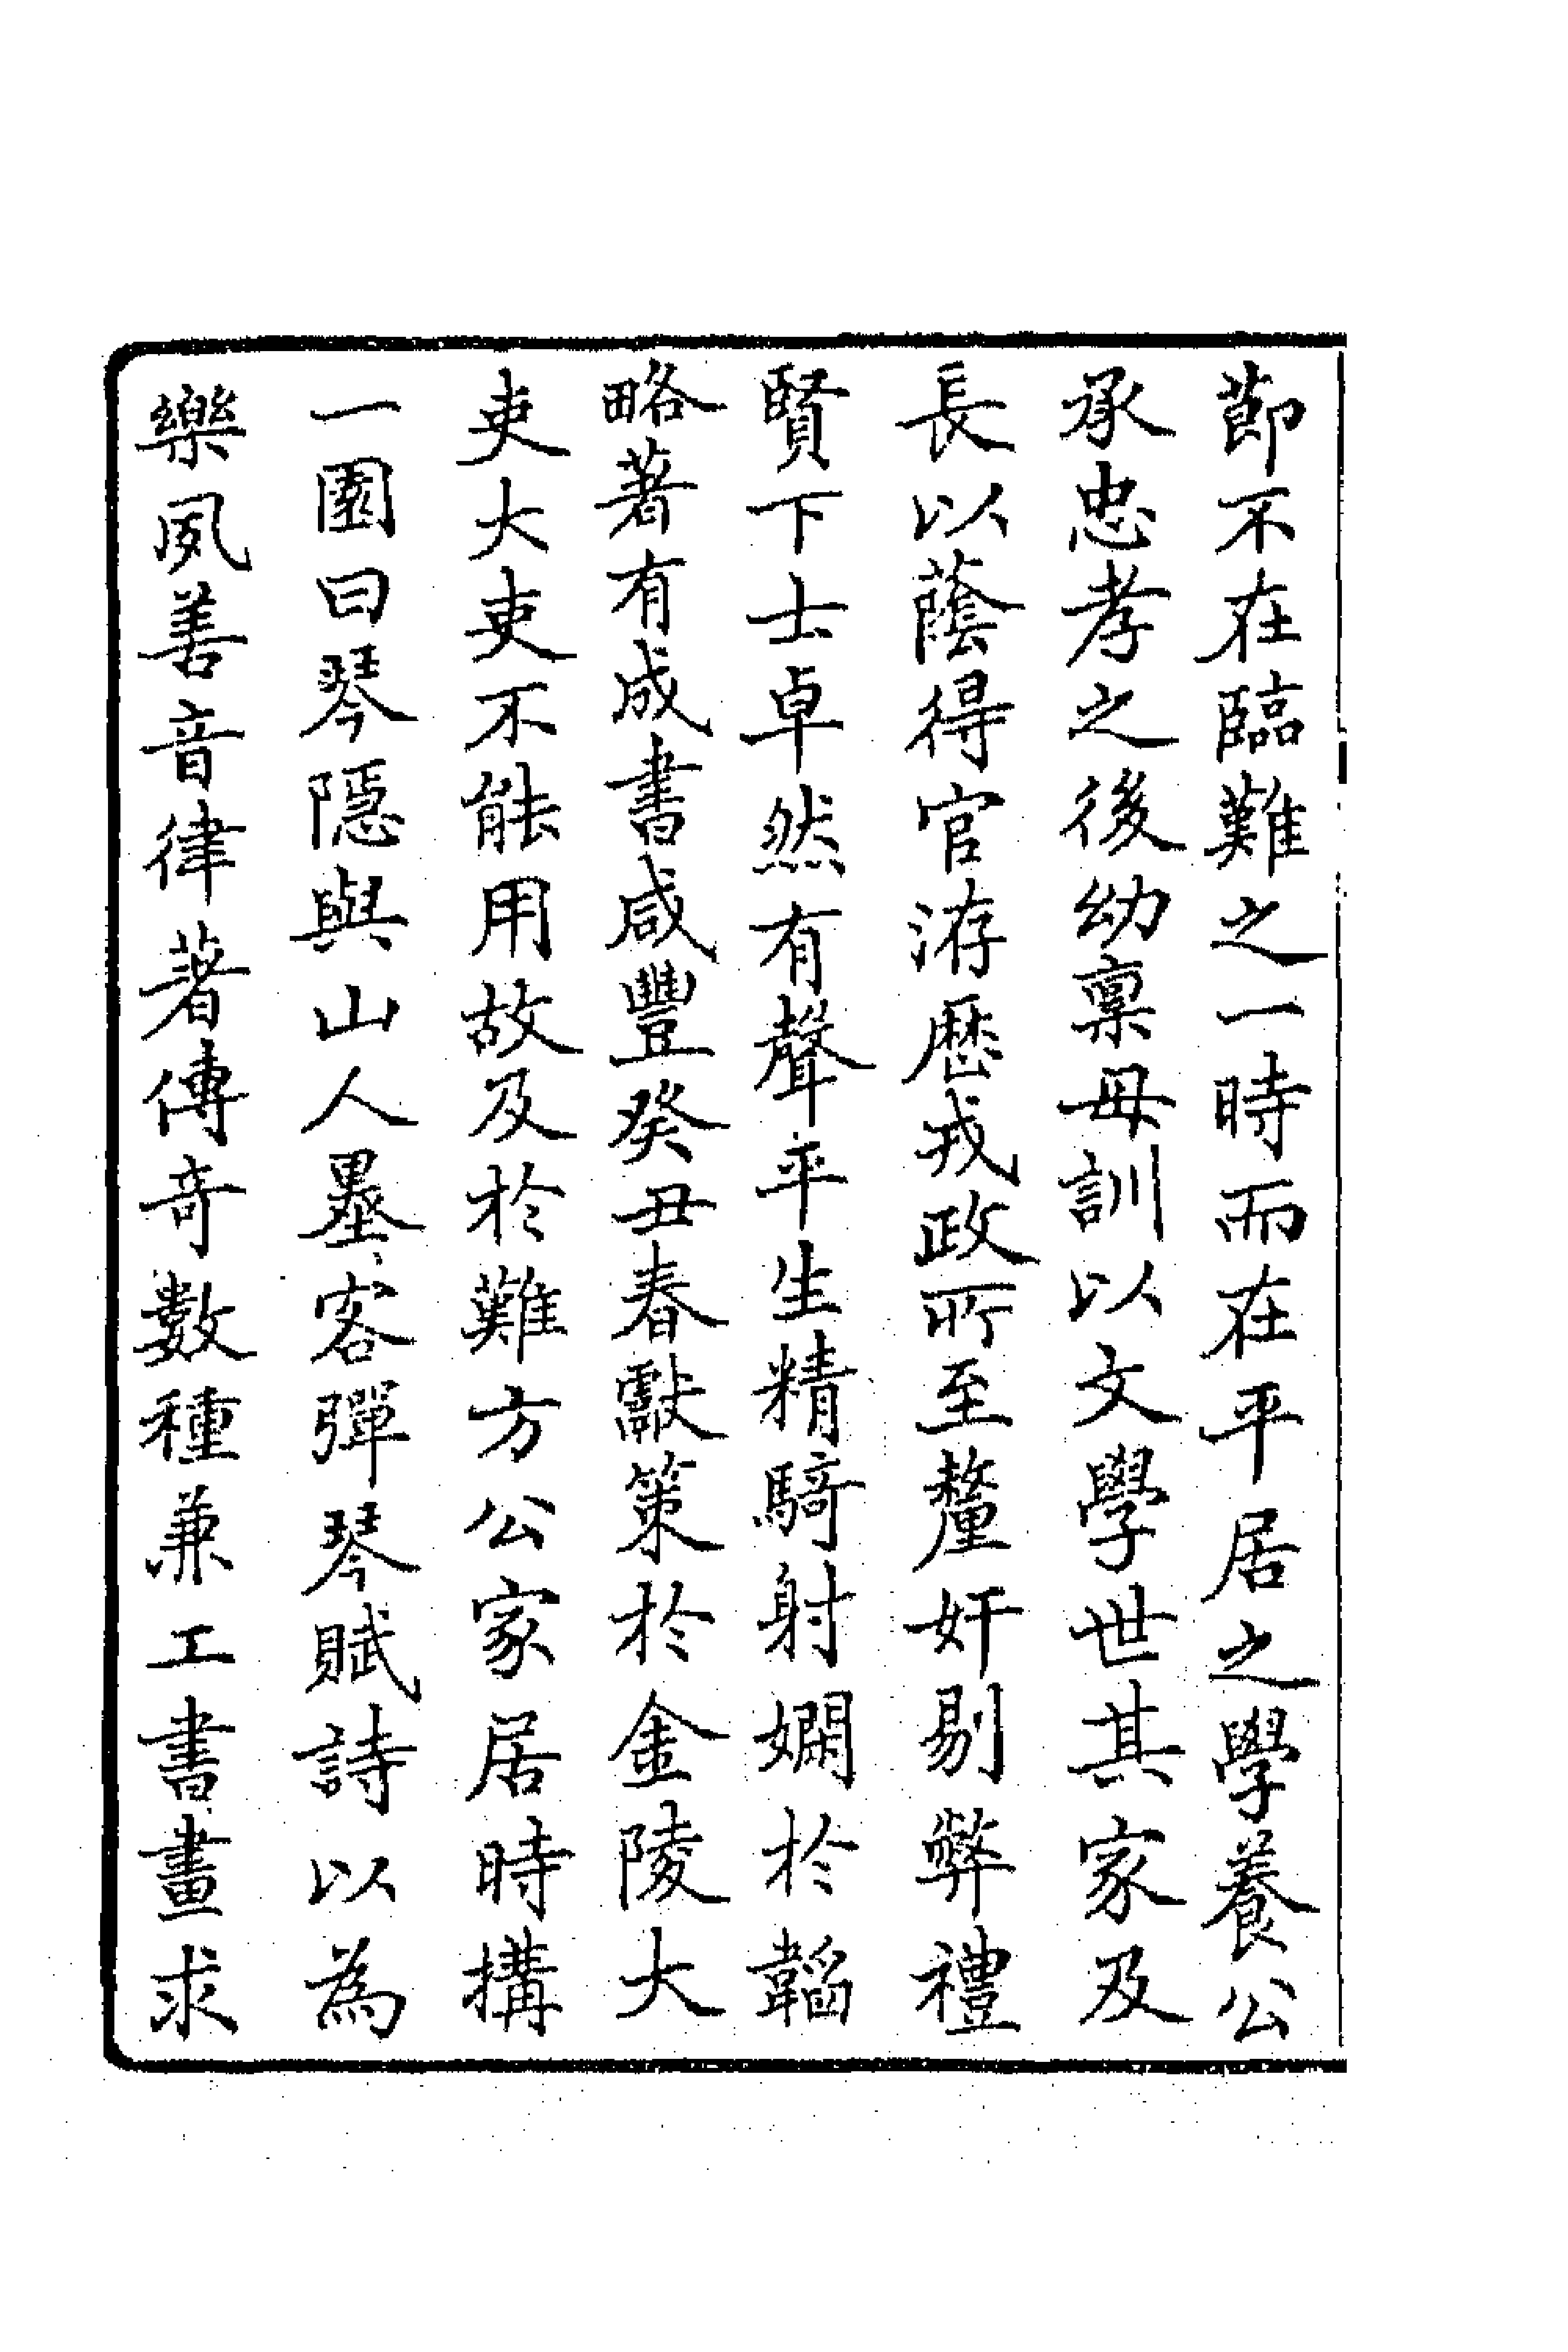 節不在臨難之一時而在平居之學養公
承忠孝之後幼稟母訓以文學世其家及
長以蔭得官洊歷戎政所至釐奸剔弊禮
賢下士卓然有聲平生精騎射嫻於韜
略著有成書咸豐癸丑春獻策於金陵大
吏大吏不能用故及於難方公家居時搆
一園曰琴隱與山人墨客彈琴賦詩以為
樂夙善音律著傳奇數種兼工書畫求